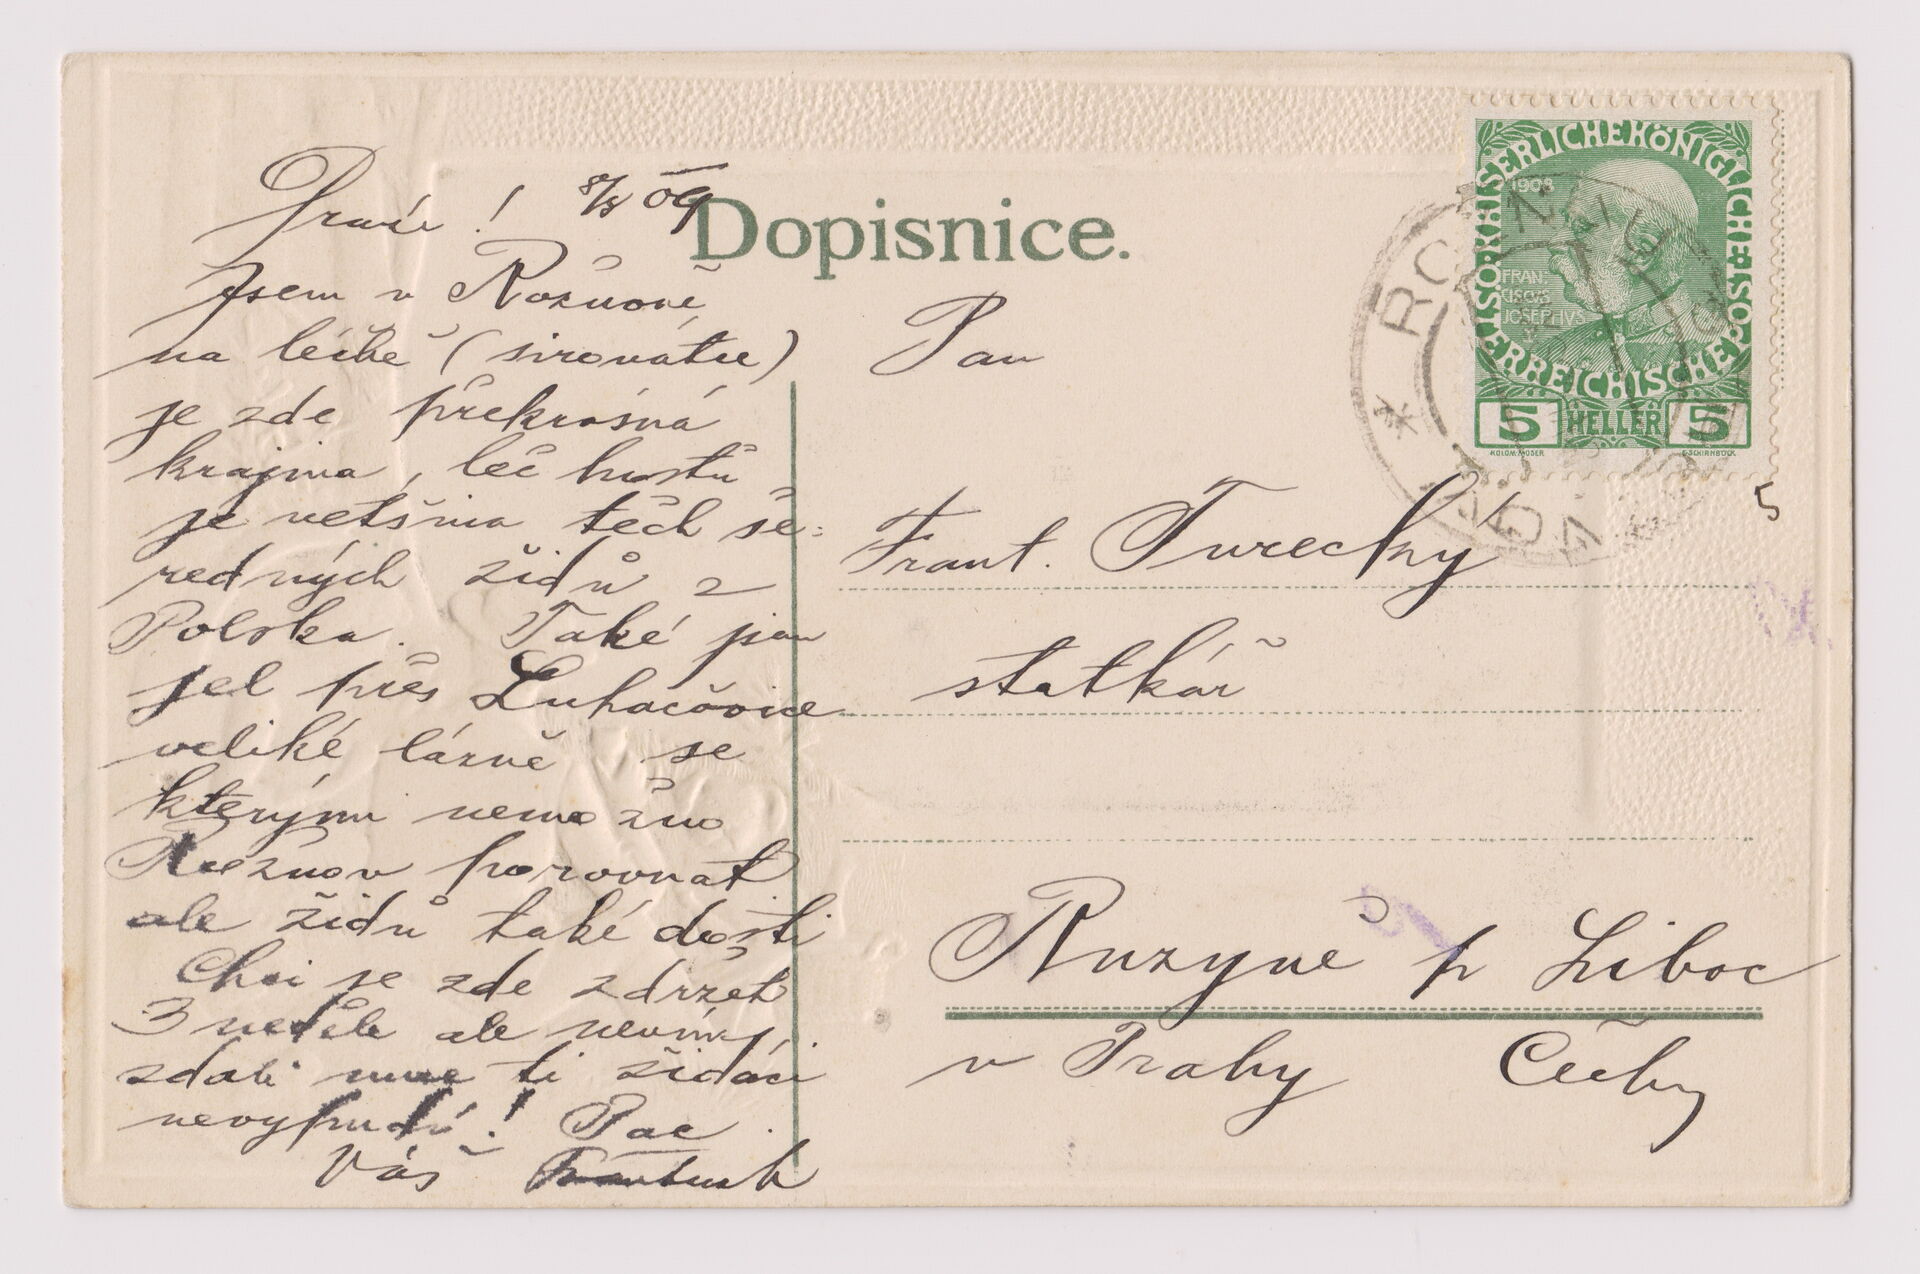 8/8 09
Dopisnice.
Jsem v Rožnově
na léčbě (sirovátce)
je zde překrásná
krajina, leč hostů
je vetšina těch še=
redných židů z
Polska. Také jsem
jel přes Luhačovice
veliké lázně se
kterými nemožno
Rožnov porovnat
ale židů také dosti
Chci se zde zdržet
3 neděle ale nevím,
zdali mne ti židáci
nevypudí! Pac.
Váš
Pan
Frant. Turecký
statkář
Ruzyně p Liboc
u Prahy Čechy
KAISERLICHE KÖNIGLICHE
ÖSTERREICHISCHE
1908
FRAN-
CISCVS
JOSEPHVS
5 HELLER 5
KOLOM.MOSER
F.SCHIRNBÖCK
5